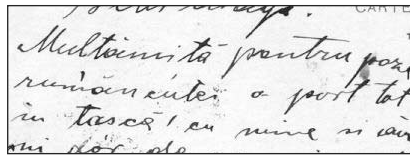 CARTE
Multămită pentru poze
rumăncuței o port tot
în tașcă cu mine si
mi dor de